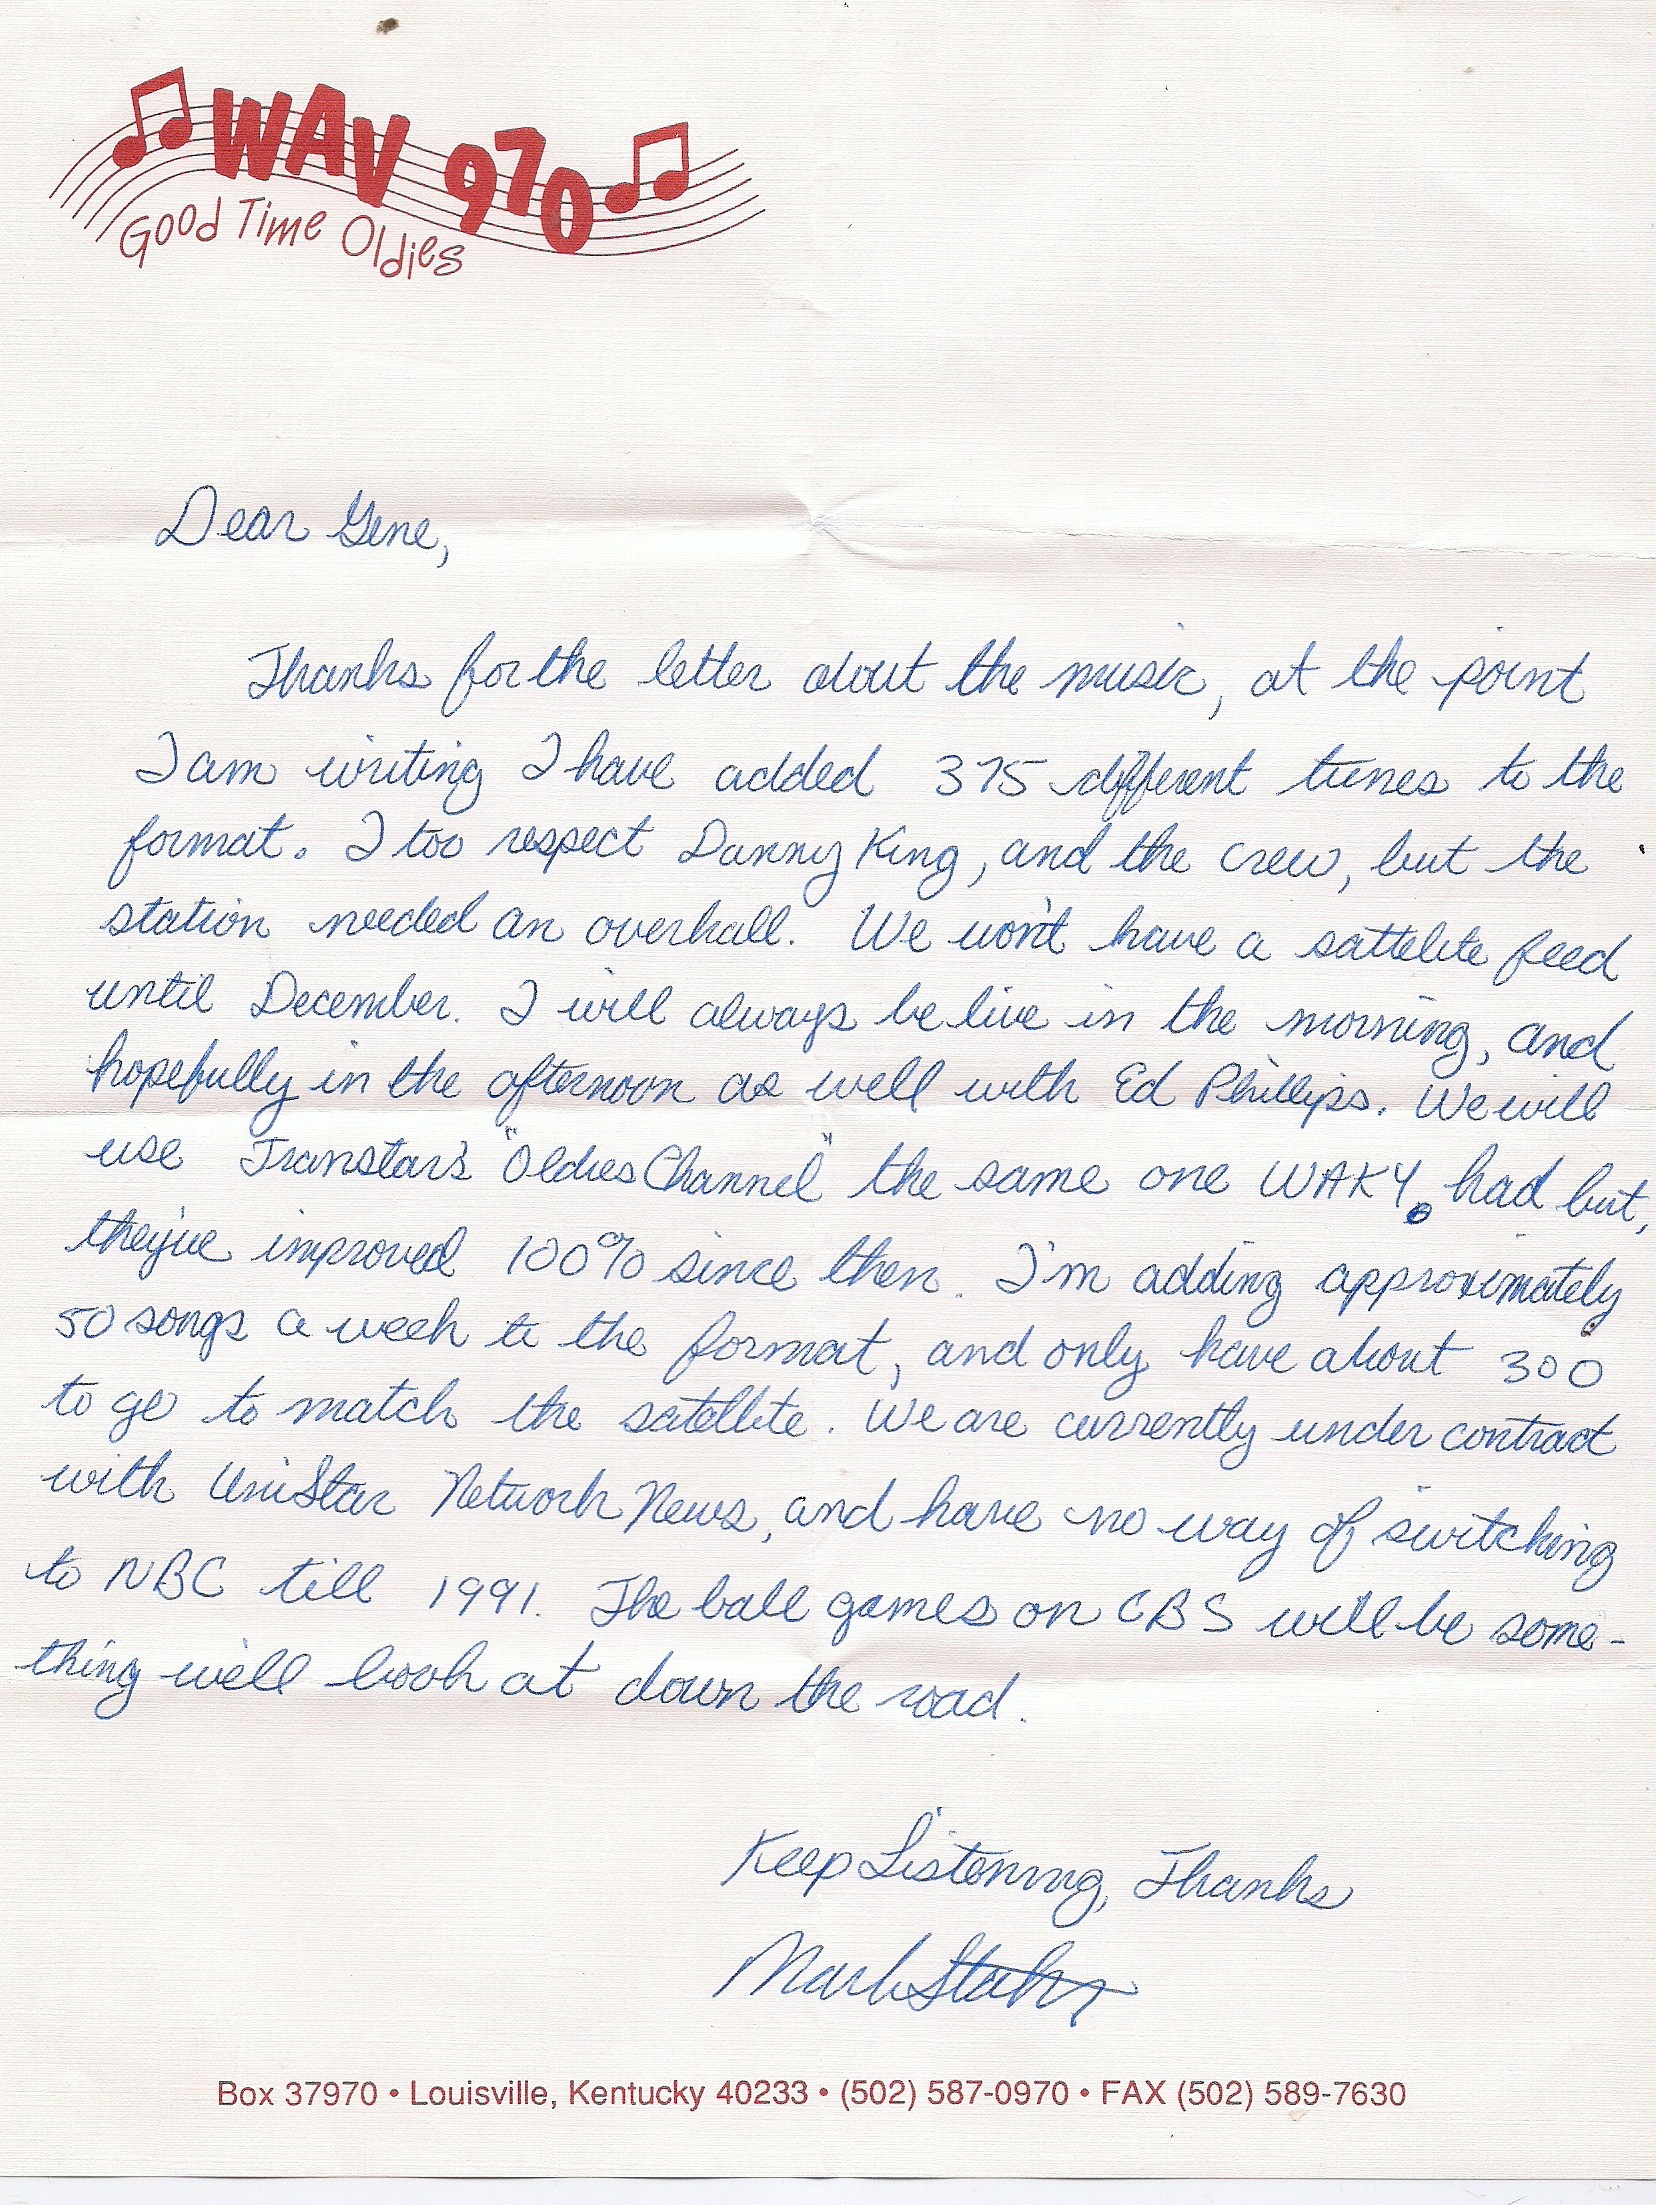 WAV 970
Good Time Oldies
Dear Gene,
Thanks for the letter about the music, at the point
I am writing I have added 375 different tunes to the
format. I too respect Danny King, and the crew, but the
station needed an overhall. We won't have a sattelite feed
until December. I will always be live in the morning, and
hopefully in the afternoon as well with Ed Phillips. We will
use Transtar's "Oldies Channel" the same one WAKY had but,
they've improved 100% since then. I'm adding approximately
50 songs a week to the format, and only have about 300
to go to match the satellite. We are currently under contract
with UniStar Network News, and have no way of switching
to NBC till 1991. The ball games on CBS will be some-
thing we'll look at down the road.
Keep Listening, Thanks
Mark
Box 37970 • Louisville, Kentucky 40233 • (502) 587-0970 • FAX (502) 589-7630